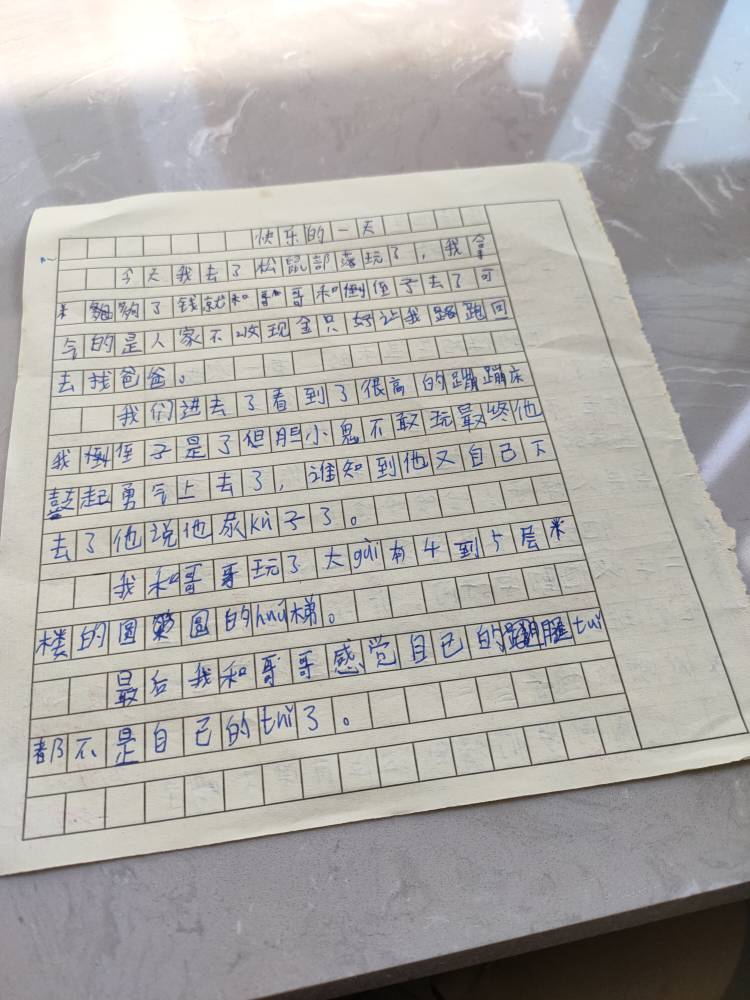 快乐的一天
今天我去了松鼠部落玩了，我拿
够了钱就和哥哥和倒侄子去了可
气的是人家不收现金只好让我跑回
去找爸爸。
我们进去了看到了很高的蹦蹦床
我倒侄子是了但胆小鬼不敢玩最终他
鼓起勇气上去了，谁知到他又自己下
去了他说他尿kù子了。
我和哥哥玩了大gài有4到5层米
楼的圆圆的huá梯。
最后我和哥哥感觉自己的tuǐ
都不是自己的tuǐ了。